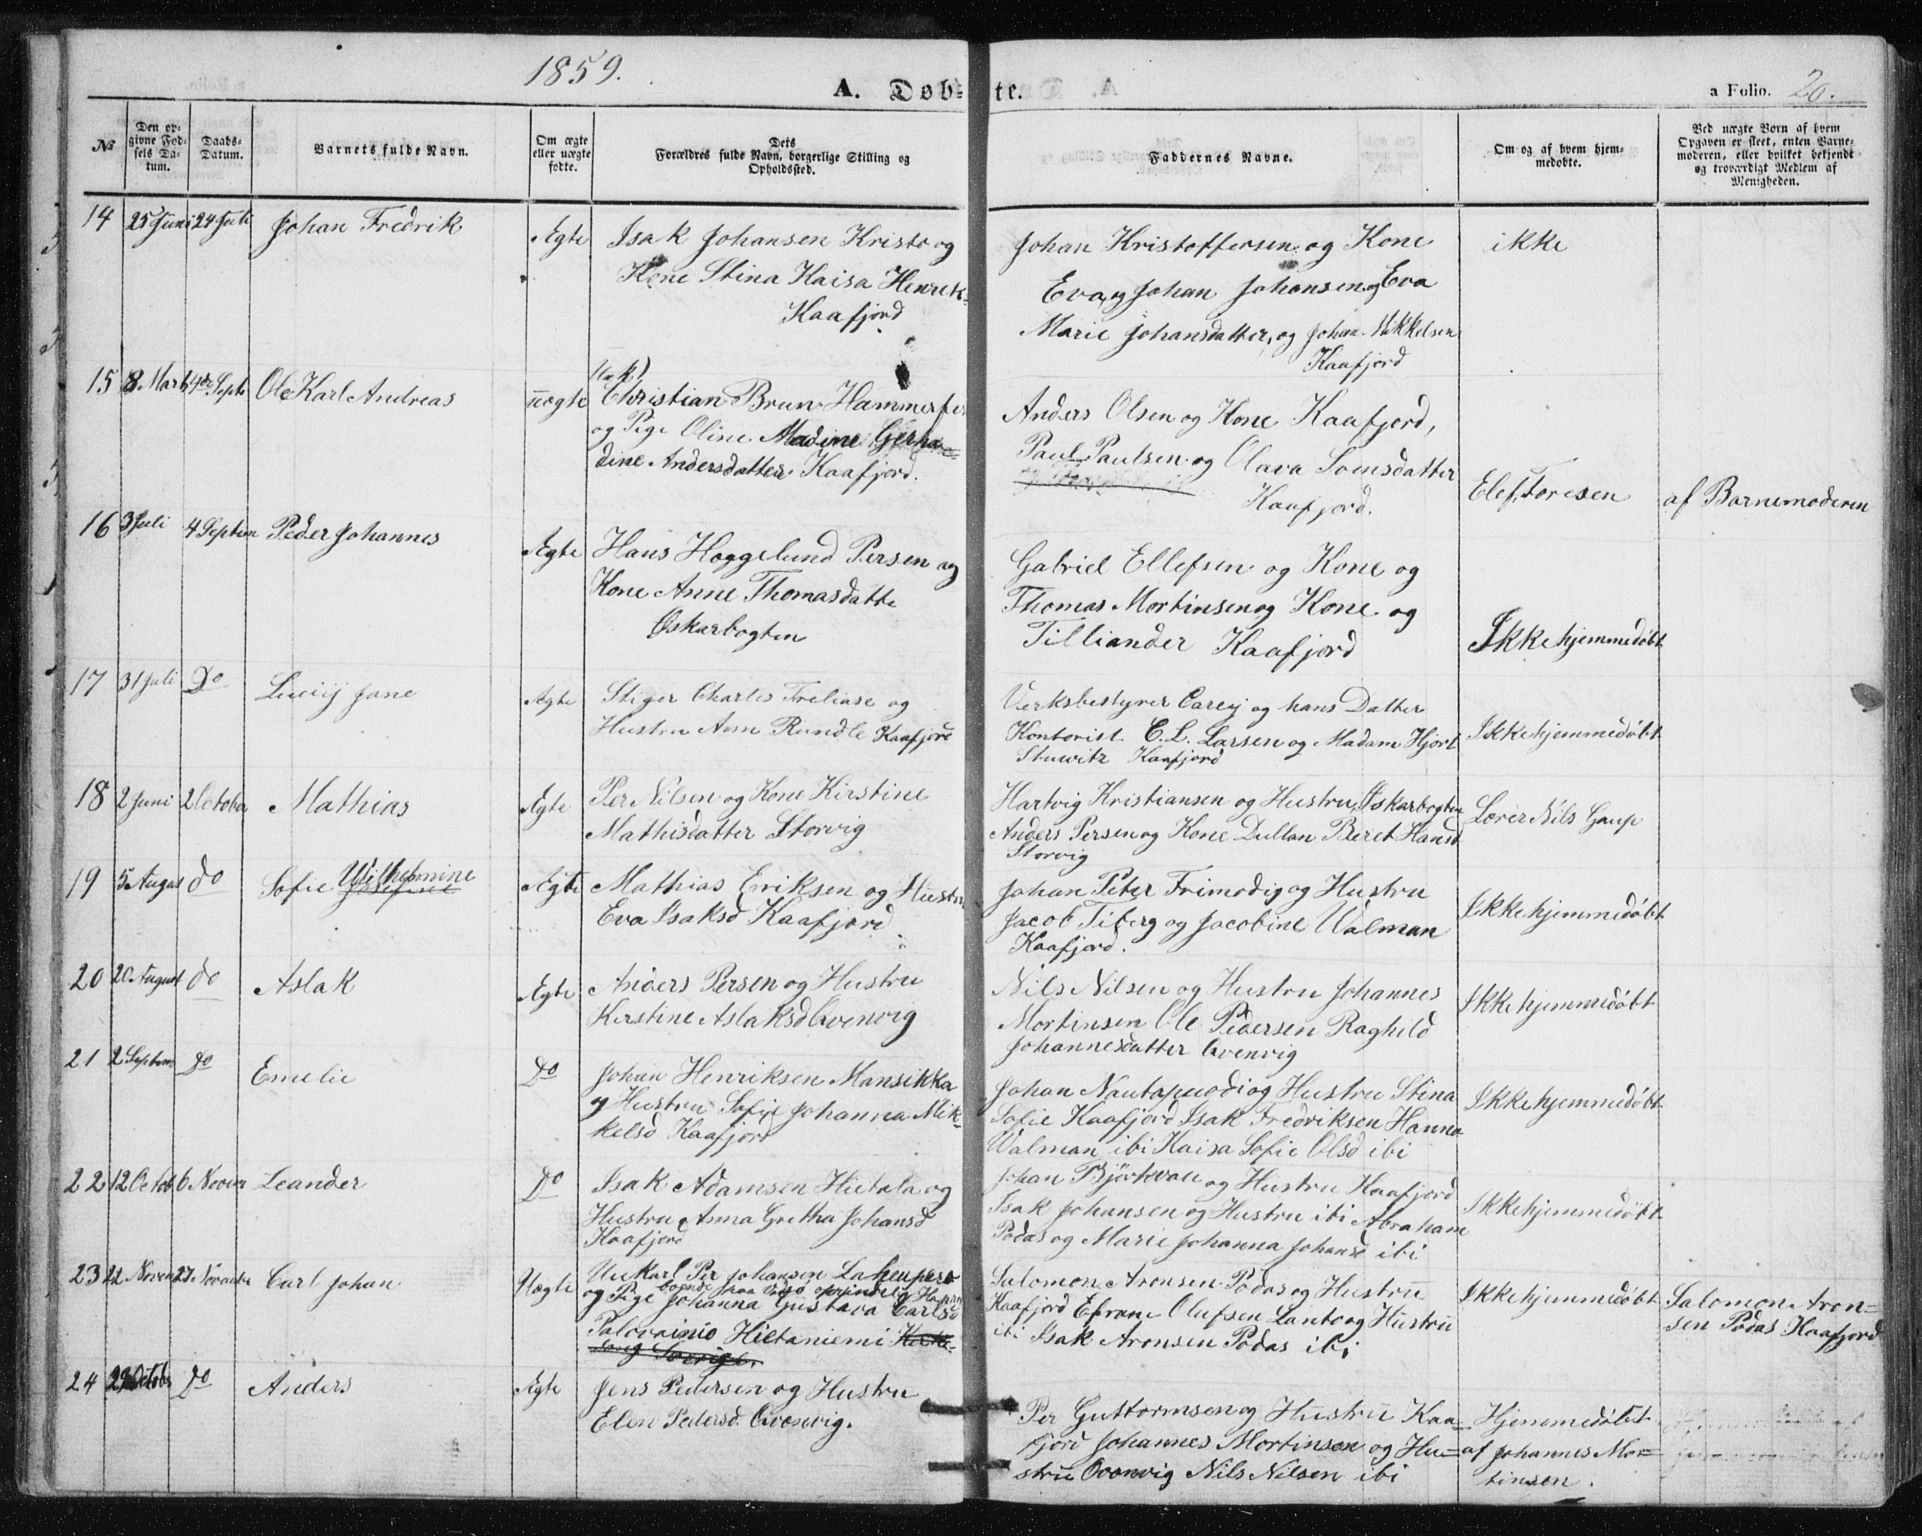 1859.
A. Døb= te.
a Folio. 20.
No
Den op-
givne Fød-
sels Da-
tum.
Daabs-
Datum.
Barnets fulde Navn.
Om ægte
eller uægte
fødte.
Dets
Forældres fulde Navn, borgerlige Stilling og
Opholdssted.
Faddernes Navne.
Om og af hvem hjem-
medøbte.
Ved uægte Børn af hvem
Opgaven er skeet, enten Barne-
moderen, eller hvilket bekjendt
og troværdigt Medlem af
Menigheden.
14 25 Juni 24 Juli Johan Fredrik Ægte Isak Johansen Kristo og
Kone Stina Kaisa Henrik-
Kaafjord
Johan Kristoffersen og Kone
Eva, og Johan Johansen og Eva
Marie Johansdatter, og Johan Mikkelsen
Kaafjord
ikke
15 8 Marts 4de Septb Ole Karl Andreas uægte Unk.
Christian Brun Hammerfes
og Pige Oline Madine Gerha=
dine Andersdatter Kaafjord.
Anders Olsen og Kone Kaafjord,
Paul Paulsen og Olava Tomsdatter
Kaafjord.
Elef Toresen
af Barnemoderen
16 3 Juli 4 Septem Peder Johannes Ægte Hans Hoggelund Persen og
Kone Anne Thomasdatte
Øskarbogten
Gabriel Ellefsen og Kone og
Thomas Mortinsen og Kone og
Tilliander Kaafjord
Ikke hjemmedøbt
17 31 Juli Do Luciy Jane Ægte Stiger Charles Treliase og
Hustru Ann Rundle Kaafjord
Verksbestyrer Carey og hans Datter
Kontorist C.L. Larsen og Madam Hjort
Stuwitz Kaafjord
Ikke hjemmedøbt
18 2 Juni 2 October Mathias Ægte Per Nilsen og Kone Kirstine
Mathisdatter Storvig
Hartvig Kristiansen og Hustru, Øskarbogten
Anders Persen og Kone Dullan Beret Hansd
Storvig
Lærer Nils Gaup
19 5 August do Sofie Wilhelmine
Josefine
Ægte Mathias Eriksen og Hustru
Eva Isaksd Kaafjord
Johan Peter Frimodig og Hustru
Jacob Tiberg og Jacobine Walman
Kaafjord.
Ikke hjemmedøbt
20 20 August do Aslak Ægte Anders Persen og Hustru
Kirstine Aslaksd Qvenvig
Nils Nilsen og Hustru Johannes
Mortinsen Ole Pedersen Raghild
Johannesdatter Qvenvig
Ikke hjemmedøbt
21 2 Septem Do Emelie Do Johan Henriksen Mansikka
og Hustru Sofie Johanna Mik-
kelsd Kaafjord
Johan Nautapuodi og Hustru Stina
Sofie Kaafjord Isak Fredriksen Hanna
Walman ibi Kaisa Sofie Olsd ibi
Ikke hjemmedøbt
22 12 Octob 6 Novem Leander Do Isak Adamsen Hietala og
Hustru Anna Gretha Johansd
Kaafjord
Johan Björkvan og Hustru Kaafjord
Isak Johansen og Hustru ibi Abraham
Podas og Marie Johanna Johansd ibi
Ikke hjemmedøbt
23 22 Novem 27 Novembr Carl Johan Uægte Unkarl Per Johansen Lahenpera
og Pige Johanna Gustava Carlsd
Palovainio Hietaniemi
Sverige.
Salomon Aronsen Podas og Hustru
Kaafjord Efraim Olufsen Lanto og Hustru
ibi Isak Aronsen Podas ibi
Ikke hjemmedøbt
Salomon Aron=
sen Podas Kaafjord
24 29 Octobr Do Anders Ægte Jens Pedersen og Hustru
Elen Pedersd Qvenvig.
Per Guttormsen og Hustru Kaa-
fjord Johannes Mortinsen og Hu=
stru Qvenvig Nils Nilsen ibi
Hjemmedøbt
af Johannes Mor=
tinsen.